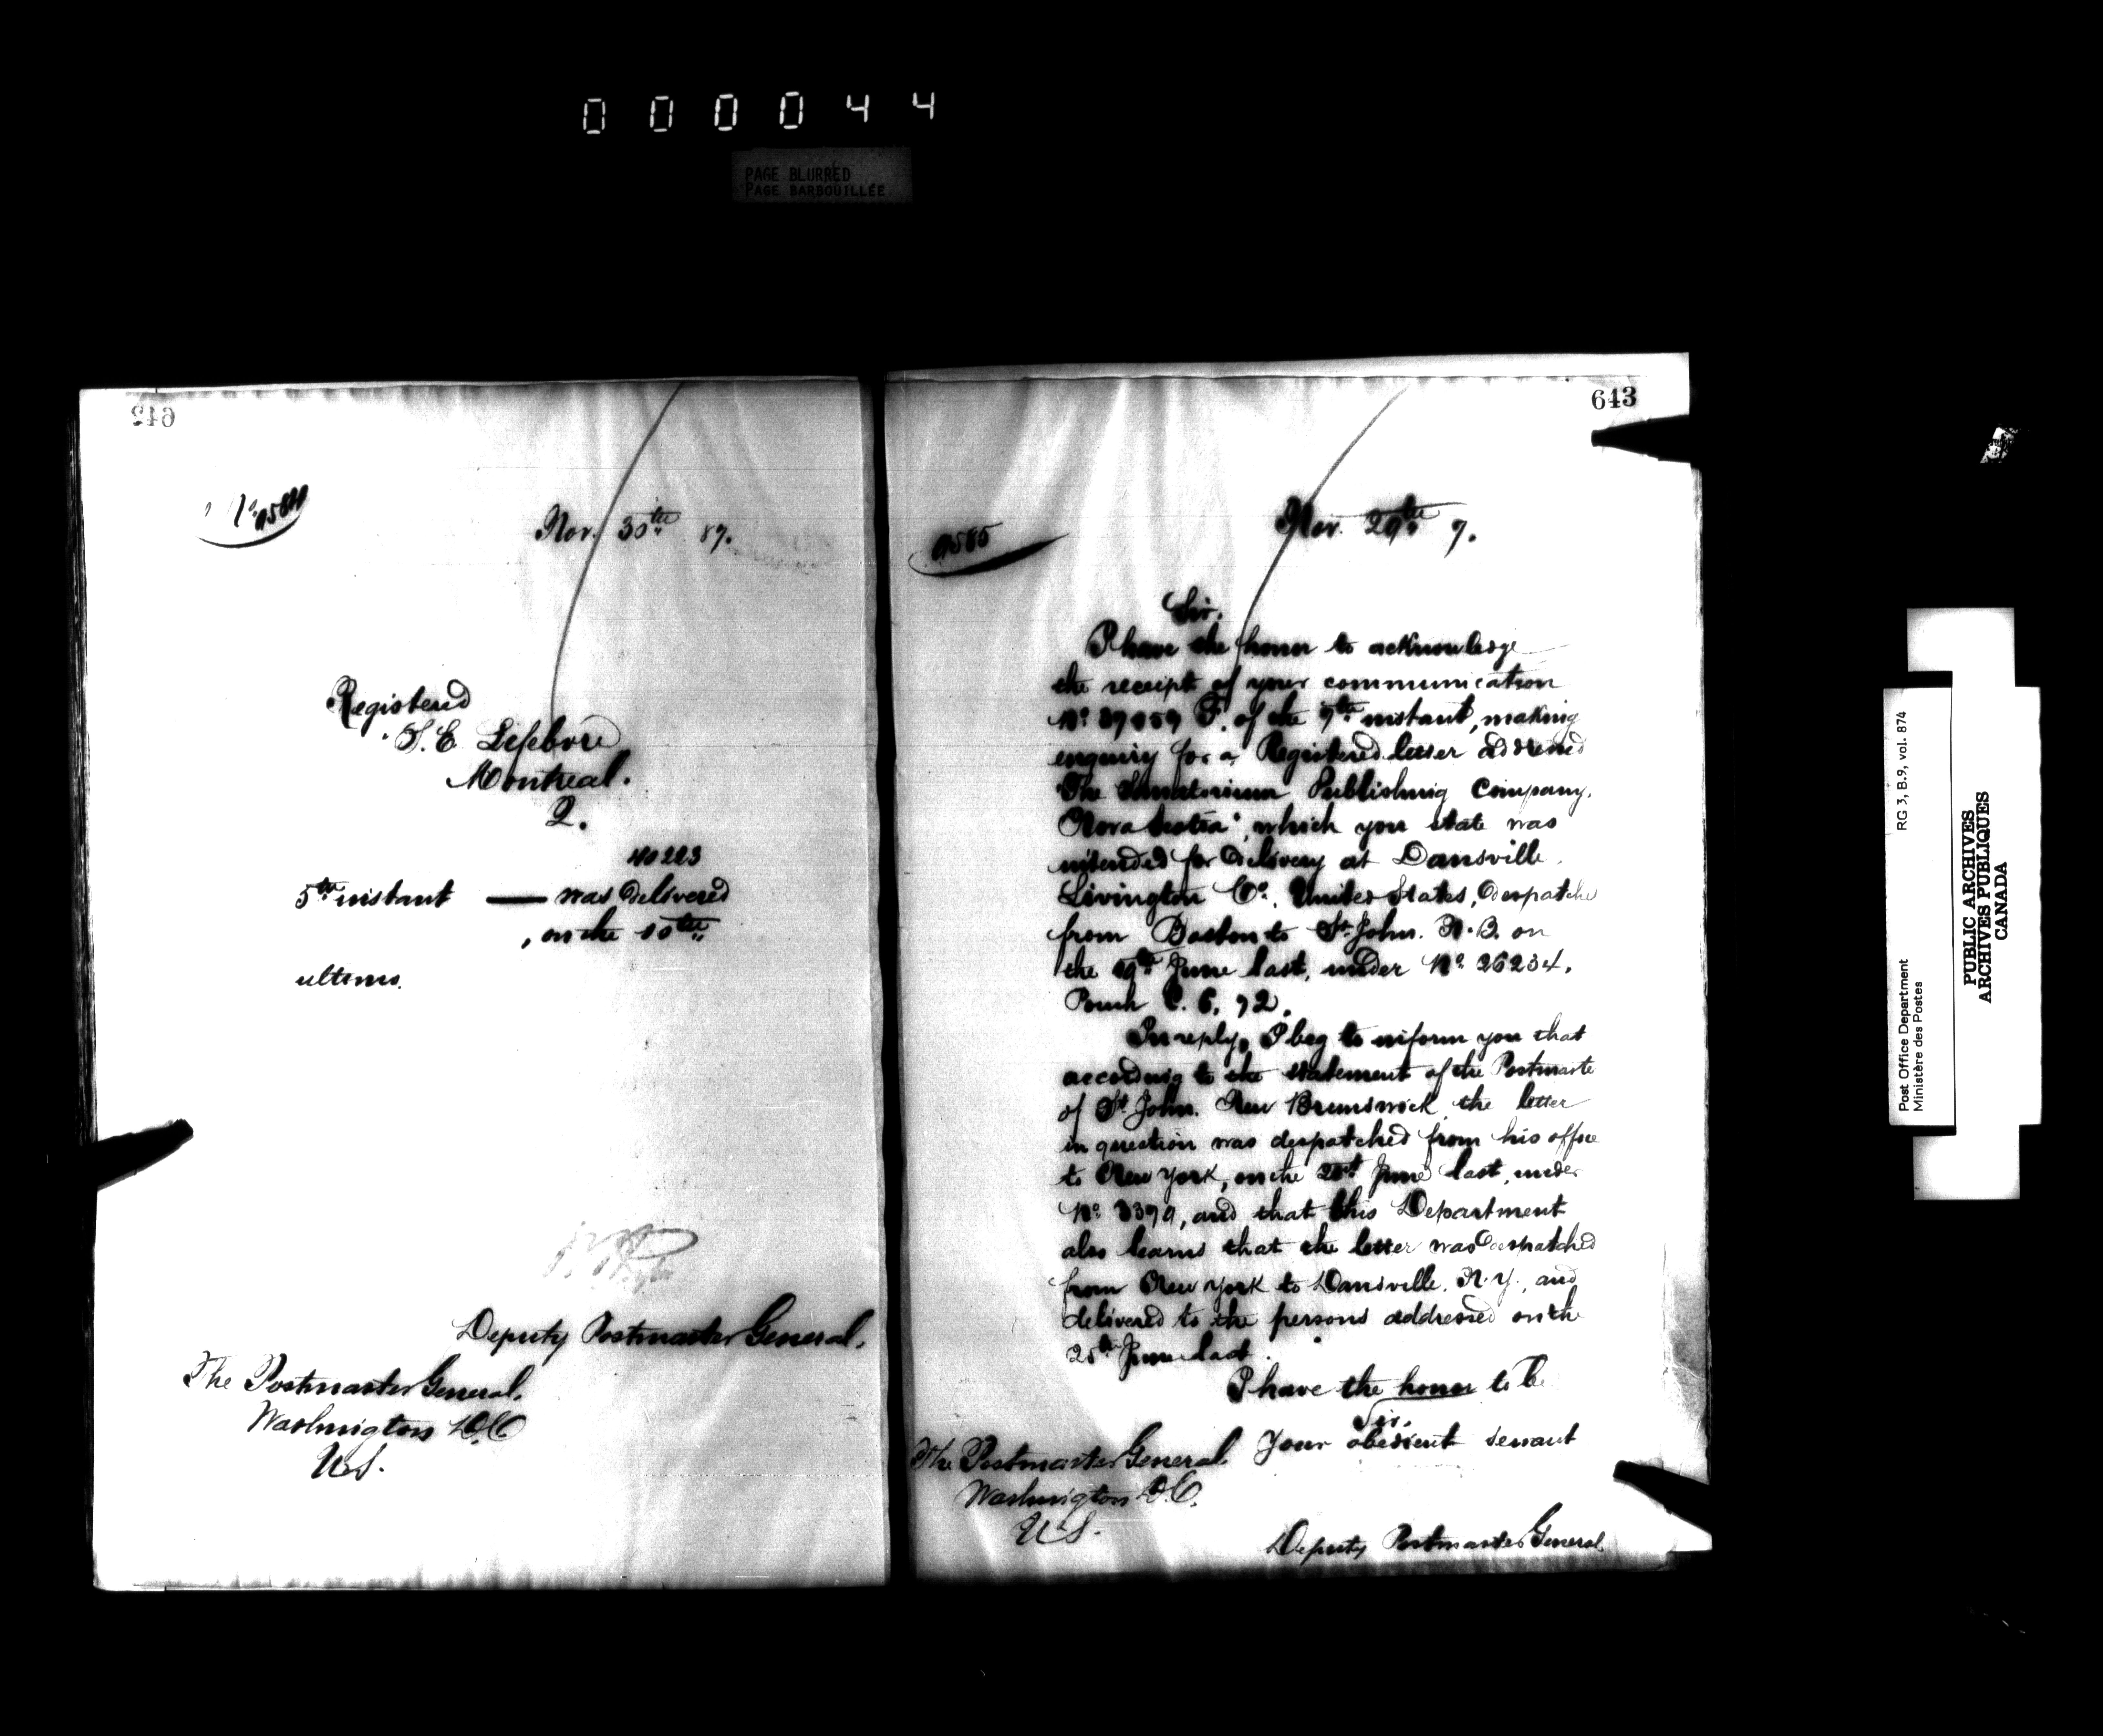 000044
PAGE BLURRED
PAGE BARBOUILLÉE
642
Nov. 30th 87.
Registered
Lefebvre
Montreal.
Q.
5th instant — was delivered
, on the 10th
ultimo.
Deputy Postmaster General.
The Postmaster General.
Washington D.C
U.S.
643
9585
Nov. 29th 7.
Sir.
I have the honor to acknowledge
the receipt of your communication
No F. of the 7th instant, making
enquiry for a Registered letter addressed
"The Sanatorium Publishing Company,
Nova Scotia", which you state was
intended for delivery at Dansville
Livingston Co. United States, despatche
from Boston to St. John. N.B. on
the 19th June last, under No 26234.
Pouch
In reply, I beg to inform you that
according to the statement of the Postmaste
of St. John. New Brunswick the letter
in question was despatched from his office
to New York, on the June last, under
No and that this Department
also learns that the letter was despatched
from New York to Dansville. N.Y. and
delivered to the persons addressed on the
25th June last.
I have the honor to be
Sir.
Your obedient servant
The Postmaster General
Washington D.C.
U.S.
Deputy Postmaster General.
Post Office Department
Ministère des Postes
RG 3, B.9, vol. 874
PUBLIC ARCHIVES
ARCHIVES PUBLIQUES
CANADA